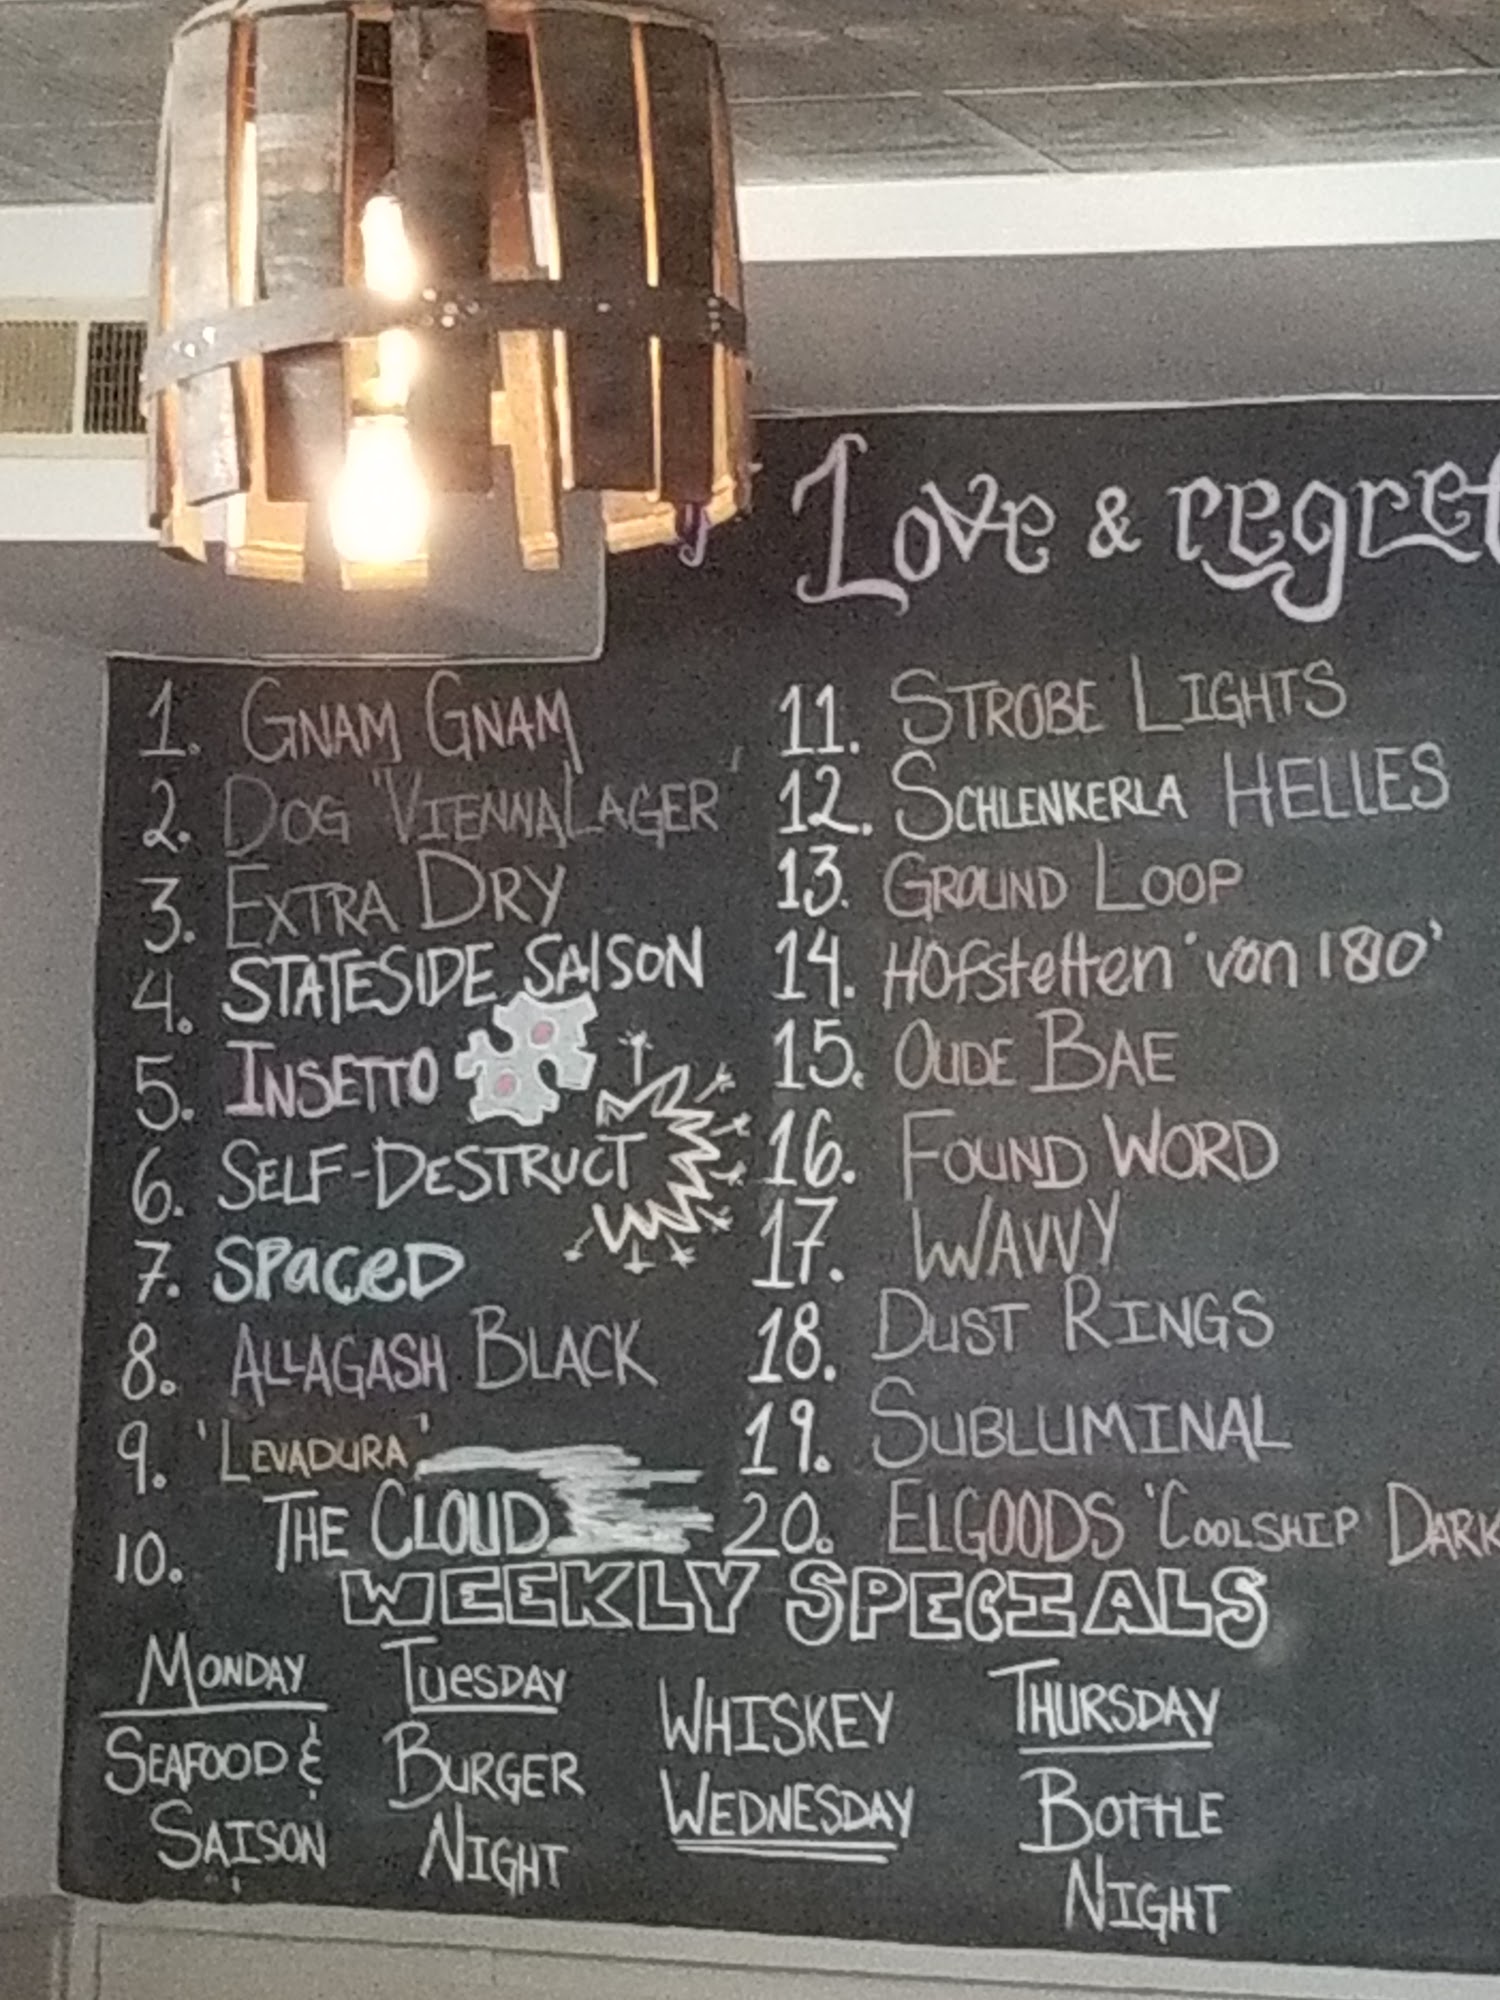 Love & regret
1. GNAM GNAM
2. DOG 'VIENNA LAGER'
3. EXTRA DRY
4. STATESIDE SAISON
5. INSETTO
6. SELF-DESTRUCT
7. SPACED
8. ALLAGASH BLACK
9. 'LEVADURA'
10. THE CLOUD
11. STROBE LIGHTS
12. SCHLENKERLA HELLES
13. GROUND LOOP
14. Hofstetten 'von 1810'
15. OUDE BAE
16. FOUND WORD
17. WAVVY
18. DUST RINGS
19. SUBLUMINAL
20. ELGOODS 'COOLSHIP DARK
WEEKLY SPECIALS
MONDAY
SEAFOOD &
SAISON
TUESDAY
BURGER
NIGHT
WHISKEY
WEDNESDAY
THURSDAY
BOTTLE
NIGHT